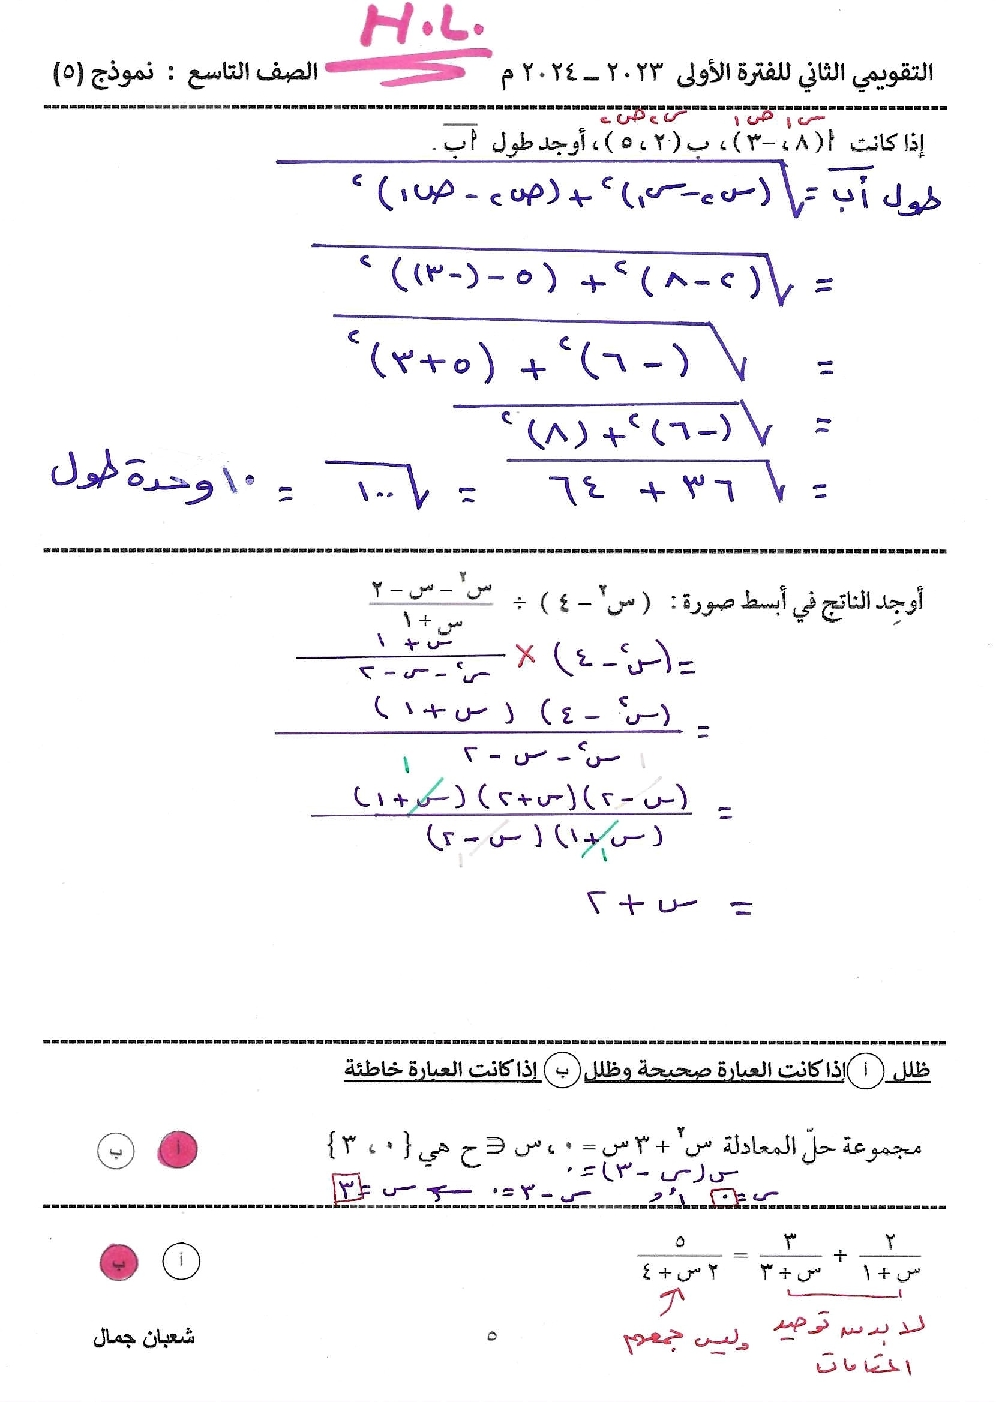 H.L.
التقويمي الثاني للفترة الأولى ٢٠٢٣ – ٢٠٢٤ م الصف التاسع : نموذج (٥)
س١ ص١ س٢ ص٢
إذا كانت أ (٨ ، -٣) ، ب (٢ ، ٥) ، أوجد طول أب .
طول أب = √(س٢ - س١)² + (ص٢ - ص١)²
= √(٢ - ٨)² + (٥ - (-٣))²
= √(-٦)² + (٥ + ٣)²
= √(-٦)² + (٨)²
= √٣٦ + ٦٤ = √١٠٠ = ١٠ وحدة طول
أوجد الناتج في أبسط صورة : (س² – ٤) ÷ (س² – س – ٢)/(س + ١)
= (س² - ٤) × (س + ١)/(س² - س - ٢)
= (س² - ٤) (س + ١)/(س² - س - ٢)
= (س - ٢)(س + ٢)(س + ١)/(س + ١)(س - ٢)
= س + ٢
ظلل أ إذا كانت العبارة صحيحة وظلل ب إذا كانت العبارة خاطئة
مجموعة حلّ المعادلة س² + ٣ س = ٠ ، س ∈ ح هي {٠ ، ٣} أ ب
س(س - ٣) = ٠
س = ٠ أو س - ٣ = ٠ ← س = ٣
٢/(س + ١) + ٣/(س + ٣) = ٥/(٢ س + ٤) أ ب
لا بد من توحيد المقامات
وليس جمعهم
٥
شعبان جمال